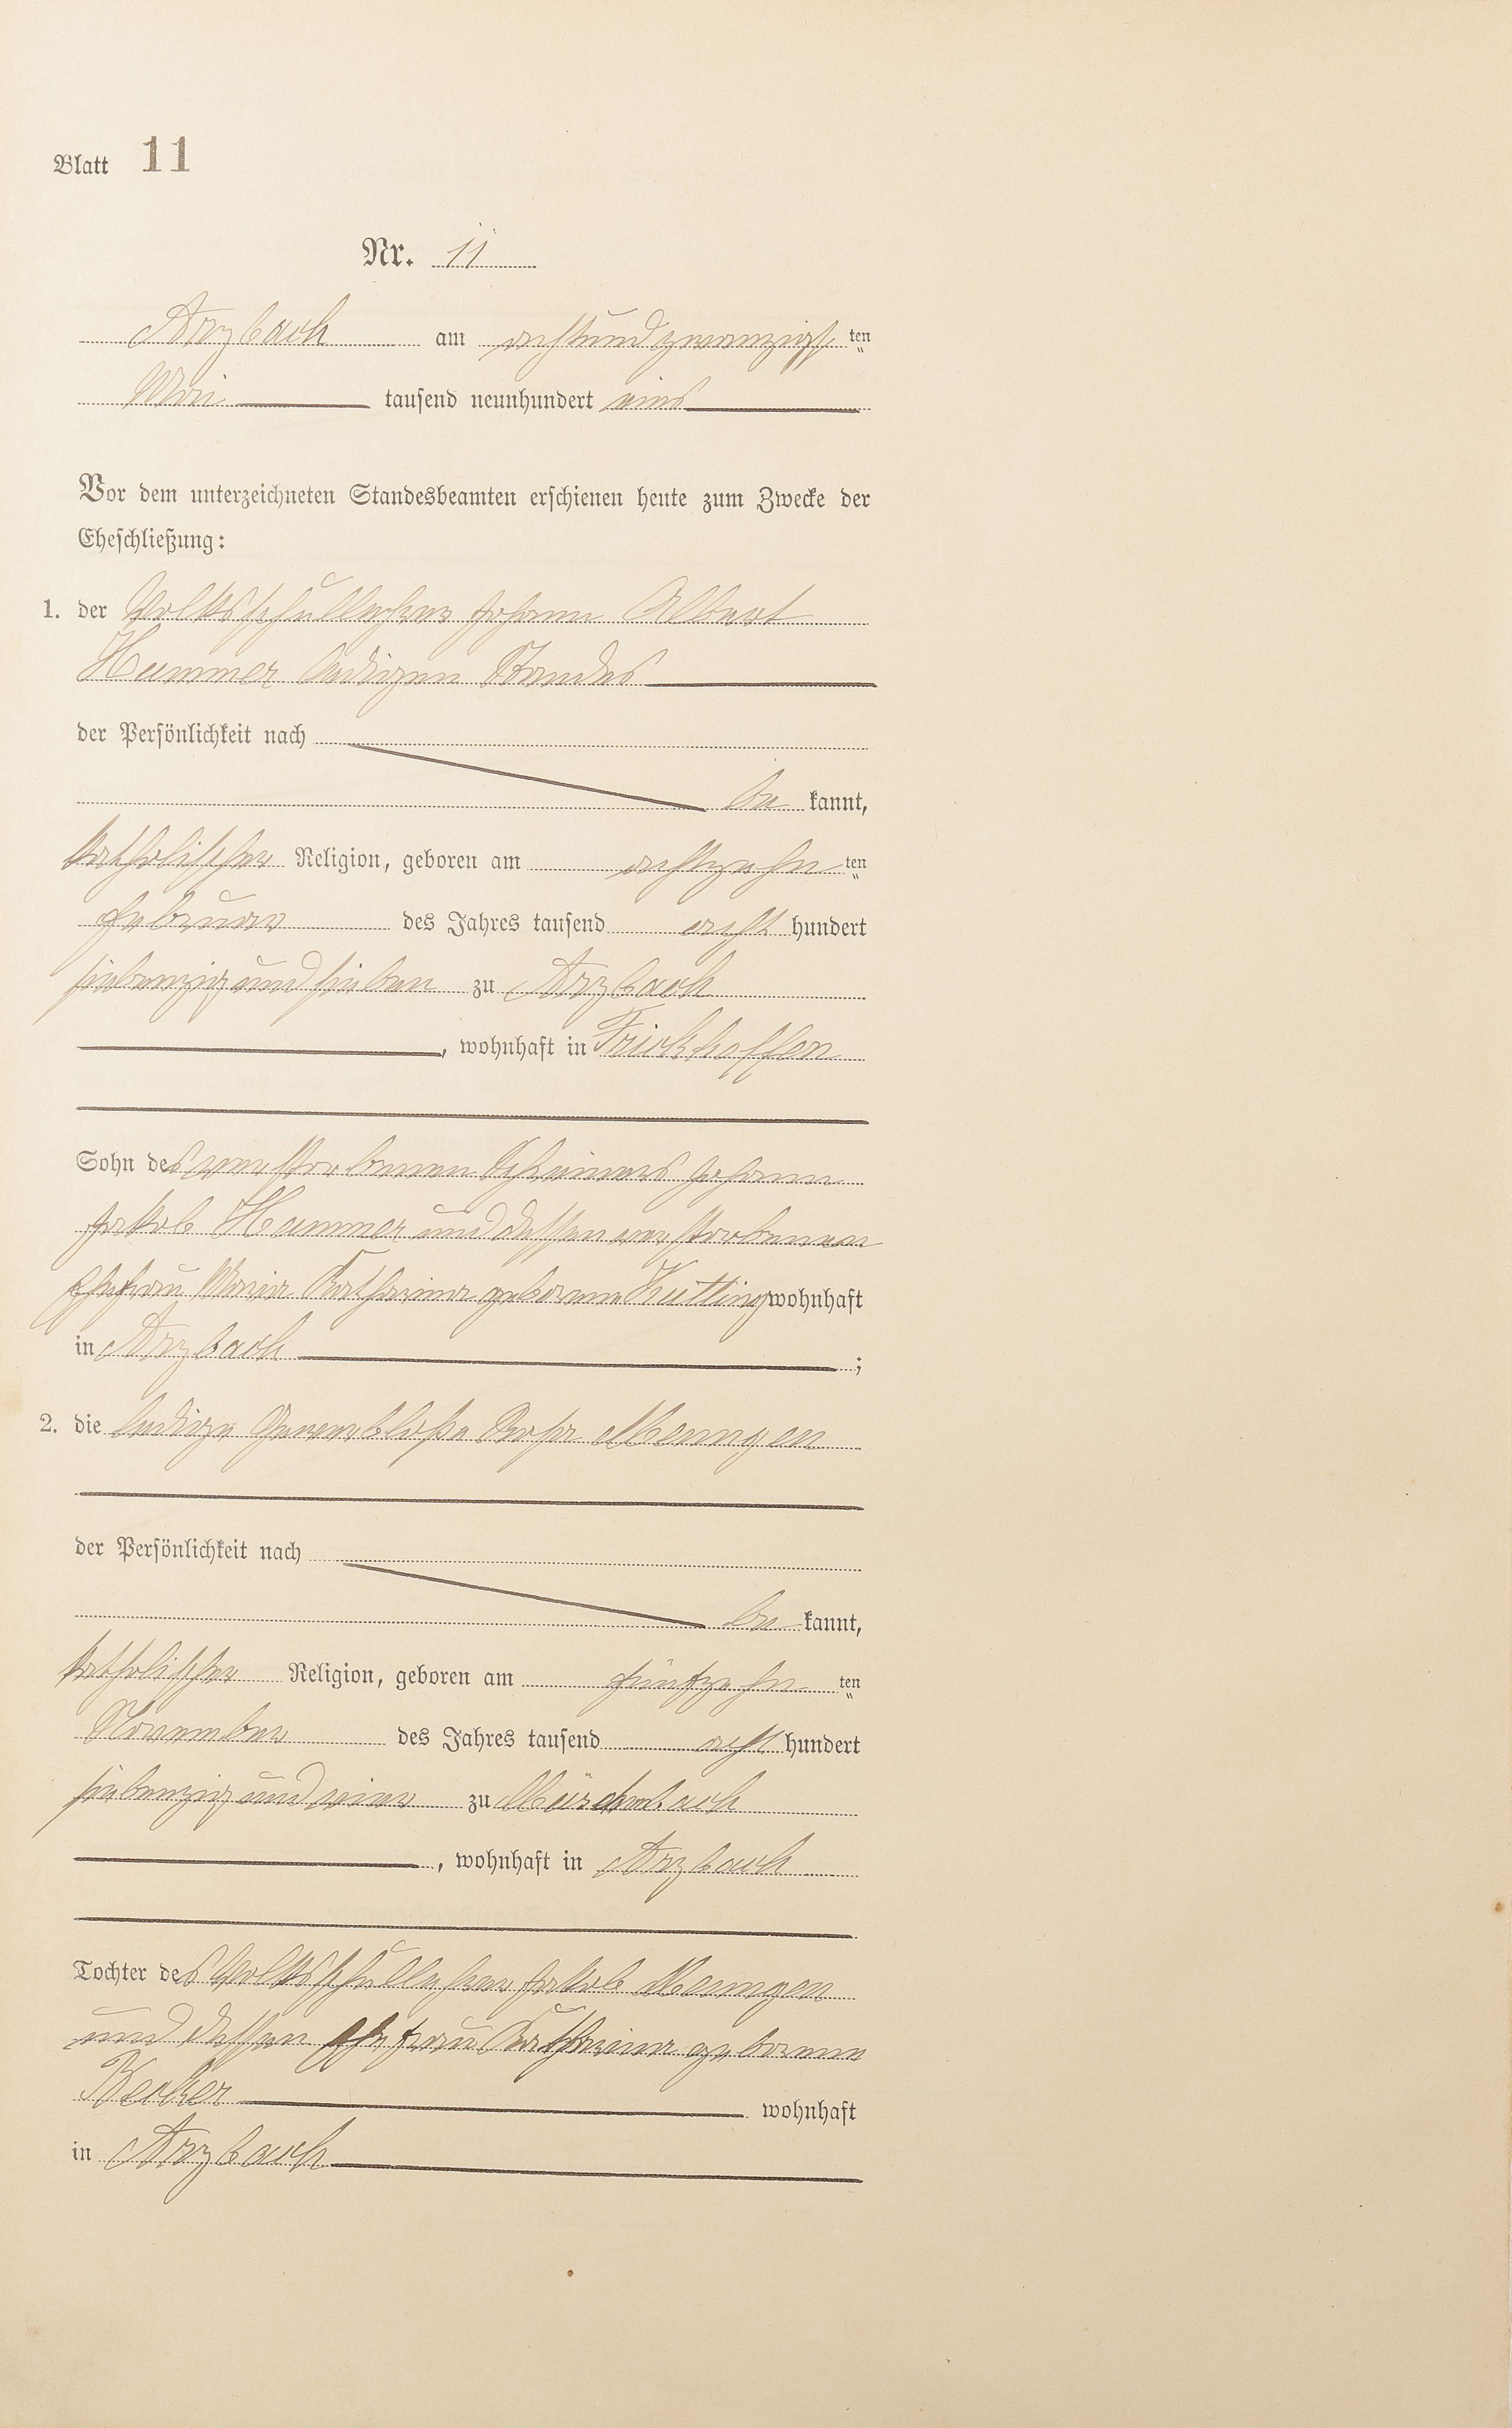 Blatt 11
Nr. 11
Arzbach am achtundzwanzigsten
Mai tausend neunhundert eins
Vor dem unterzeichneten Standesbeamten erschienen heute zum Zwecke der
Eheschließung:
1. der Volksschullehrer Johann Albert
Hammer ledigen Standes
der Persönlichkeit nach
be kannt,
katholischer Religion, geboren am achtzehn ten
Februar des Jahres tausend acht hundert
siebenzig und sieben zu Arzbach
, wohnhaft in Frickhoffen
Sohn des verstorbenen Schreiners Johann
Jakob Hammer und dessen verstorbenen
Ehefrau Maria Katharina geborene Kütting wohnhaft
in Arzbach ;
2. die ledige Gewerblose Rosa Meungen
der Persönlichkeit nach
be kannt,
katholischer Religion, geboren am fünfzehn ten
November des Jahres tausend acht hundert
siebenzig und einer zu
, wohnhaft in Arzbach
Tochter des Volksschullehrer Jakob Meungen
und dessen Ehefrau Katharina geborene
Becker wohnhaft
in Arzbach